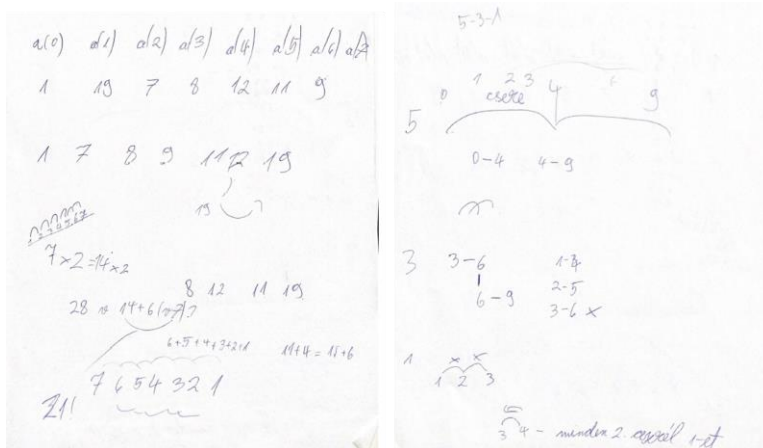 a(0) a(1) a(2) a(3) a(4) a(5) a(6) a(7
1 19 7 8 12 11 9
1 7 8 9 11 12 19
19
7x2=14x2
8 12 11 19
28 14+6
6+5+4+3+2+1 11+4=15+6
7 6 5 4 3 2 1
21!
5-3-1
1 2 3 4
0 csere 9
5
0-4 4-9
3 3-6 1-4
6-9 2-5
3-6 x
1 x x
1 2 3
3 4 - minden 2. 1-et